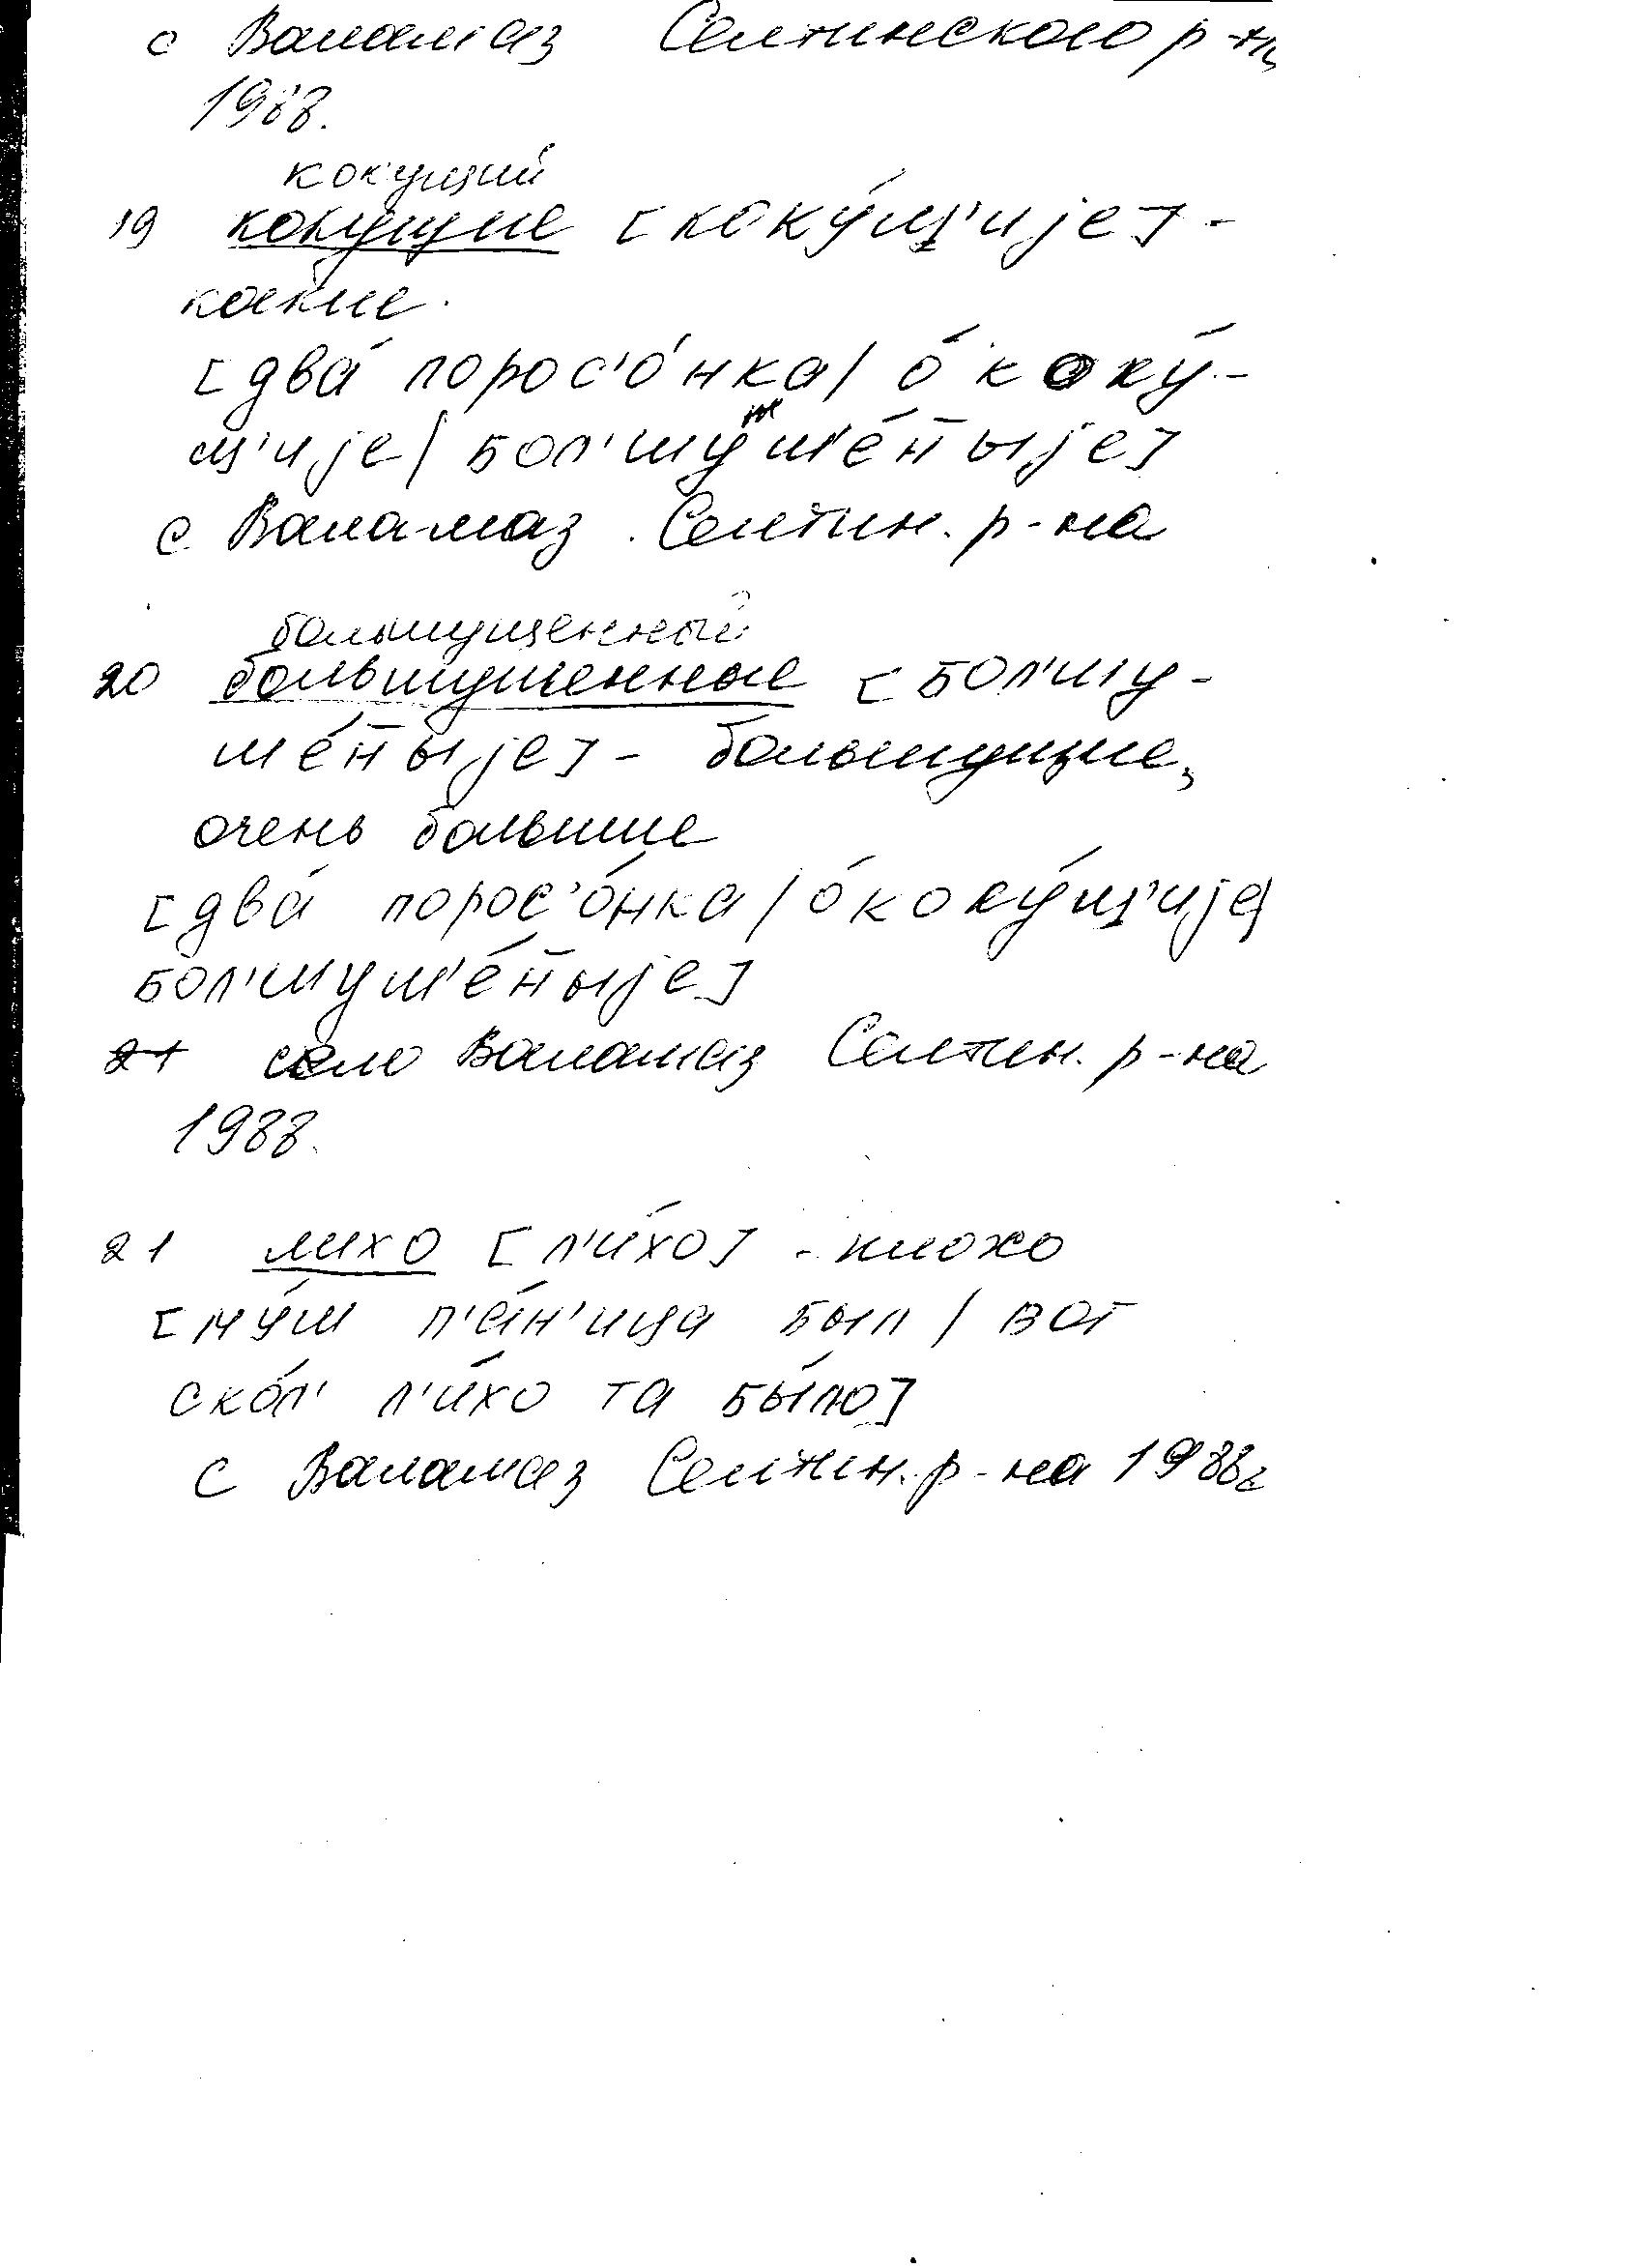 с Валамаз Селтинского р-на
1988.
кокущий
19 кокущие [кокýщ'ијe] -
какие.
[двá порос'óнка/ ó кокý-
щ'ије/ бол'шуш'éн̄ыје]
с. Валамаз. Селтин. р-на
большущенный
20 большушенные [бол'шу-
шéн̄ыје] - большущие,
очень большие
[двá порос'óнка/ ó кокýщ'ије/
бол'шуш'éн̄ыје]
21 село Валамаз Селтин. р-на
1988.
21 лихо [л'и́хо] - плохо
[мýш п'áн'ица был / вот
скóл' л'и́хо та бы́ло]
с Валамаз Селтин. р-на 1988г